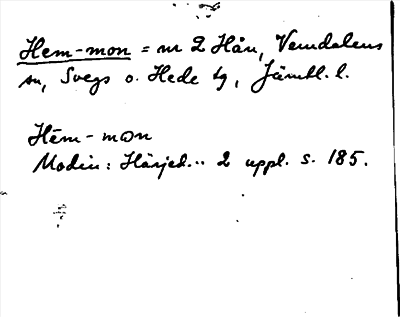 Hem-mon = nr 2 Hån, Vemdalens
sn, Svegs o. Hede tg, Jämtl. l.
Hēm-mɷn
Modin: Härjed... 2 uppl. s. 185.